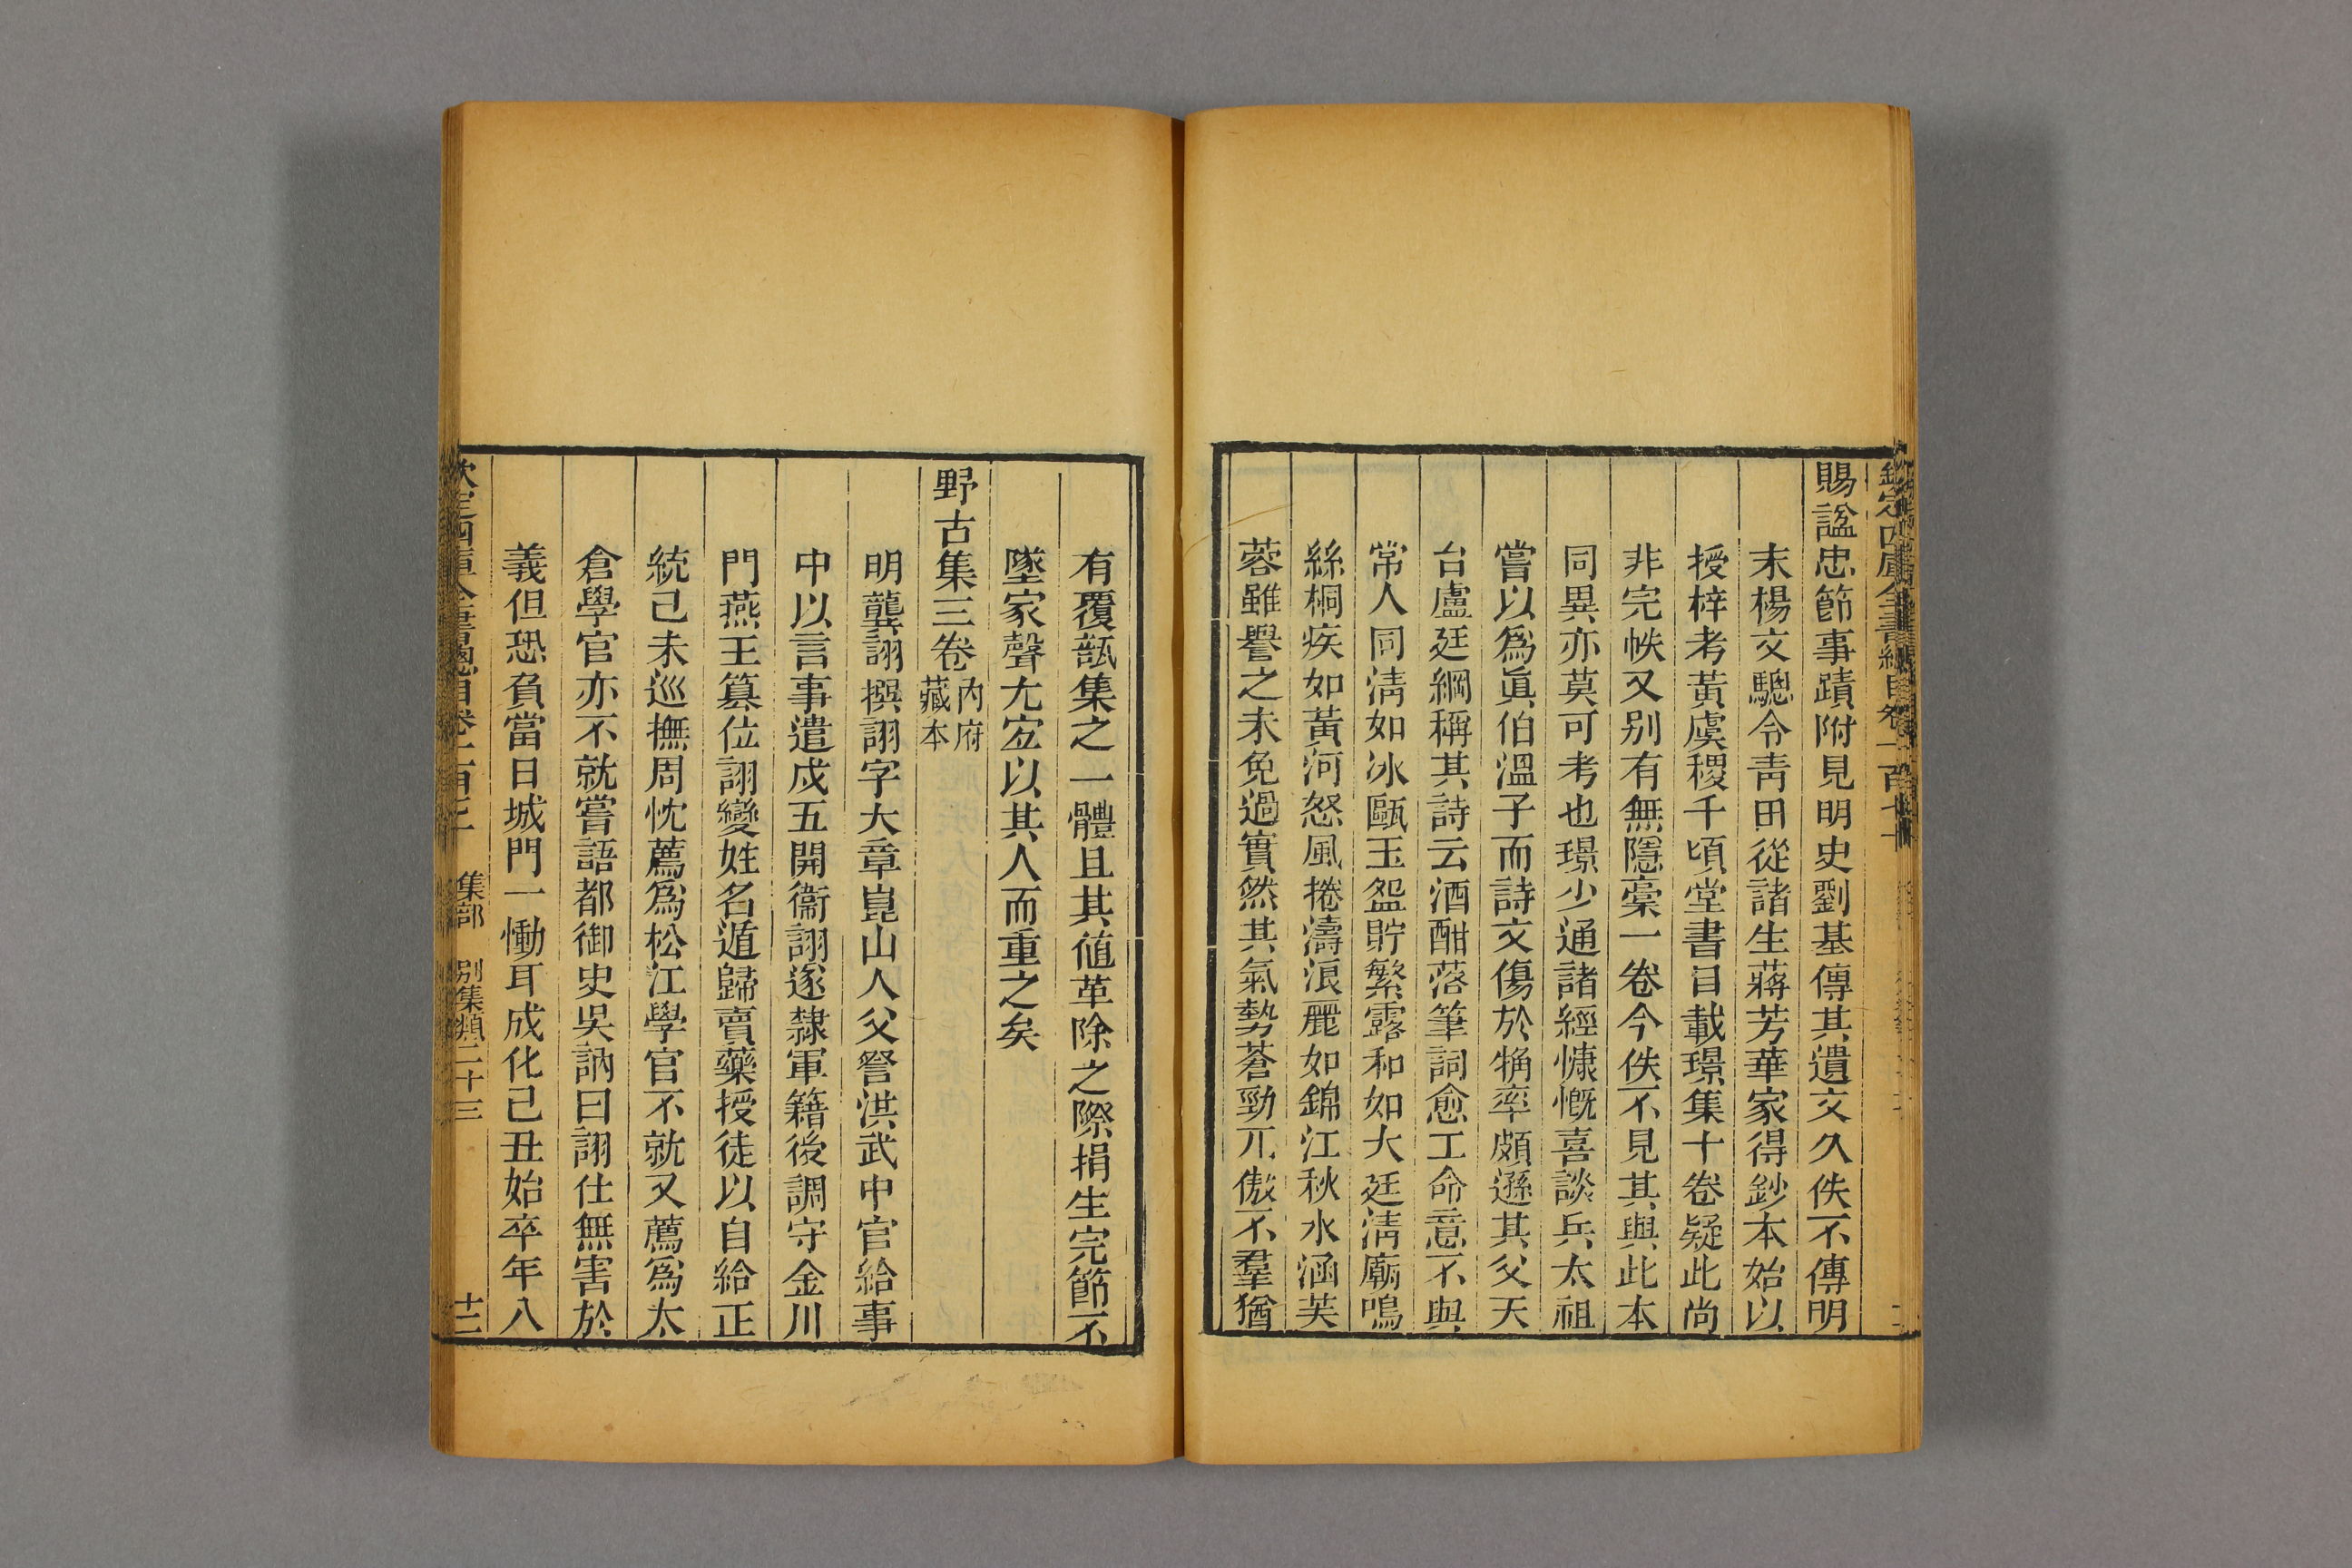 賜諡忠節事蹟附見明史劉基傳其遺文久佚不傳明
末楊文驄令靑田從諸生蔣芳華家得鈔本始以
授梓考黃虞稷千頃堂書目載璟集十卷疑此尚
非完帙又别有無隱稾一卷今佚不見其與此本
同異亦莫可考也璟少通諸經慷慨喜談兵太祖
嘗以爲眞伯溫子而詩文傷於觕率頗遜其父天
台盧廷綱稱其詩云酒酣落筆詞愈工命意不與
常人同淸如冰甌玉盌貯繁露和如大廷淸廟鳴
絲桐疾如黃河怒風捲濤浪麗如錦江秋水涵芙
蓉雖譽之未免過實然其氣勢蒼勁兀傲不羣猶
有覆瓿集之一體且其値革除之際捐生完節不
墜家聲尤宜以其人而重之矣
野古集三卷
內府
藏本
明龔詡撰詡字大章崑山人父詧洪武中官給事
中以言事遣戍五開衞詡遂隸軍籍後調守金川
門燕王簒位詡變姓名遁歸賣藥授徒以自給正
統己未巡撫周忱薦爲松江學官不就又薦爲太
倉學官亦不就嘗語都御史吳訥曰詡仕無害於
義但恐負當日城門一慟耳成化己丑始卒年八
集部 別集類二十三